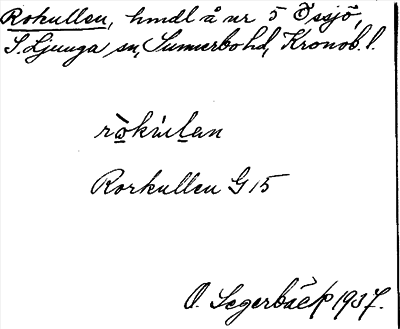 Rokullen, hmdl å nr 5 Össjö,
S. Ljunga sn, Sunnerbo hd, Kronob. l.
rò̤kúl̤an
Rorkullen G 15
O. Segerbäck 1937.